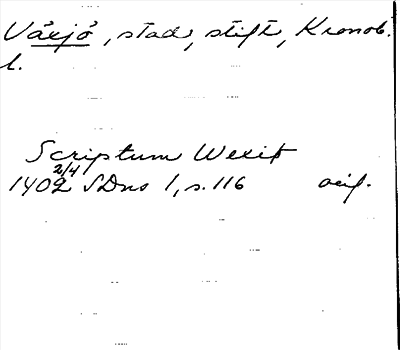 Växjö, stad, stift, Kronob.
l.
Scriptum Wexiø
2/4
1402 SDns 1, s. 116 orig.